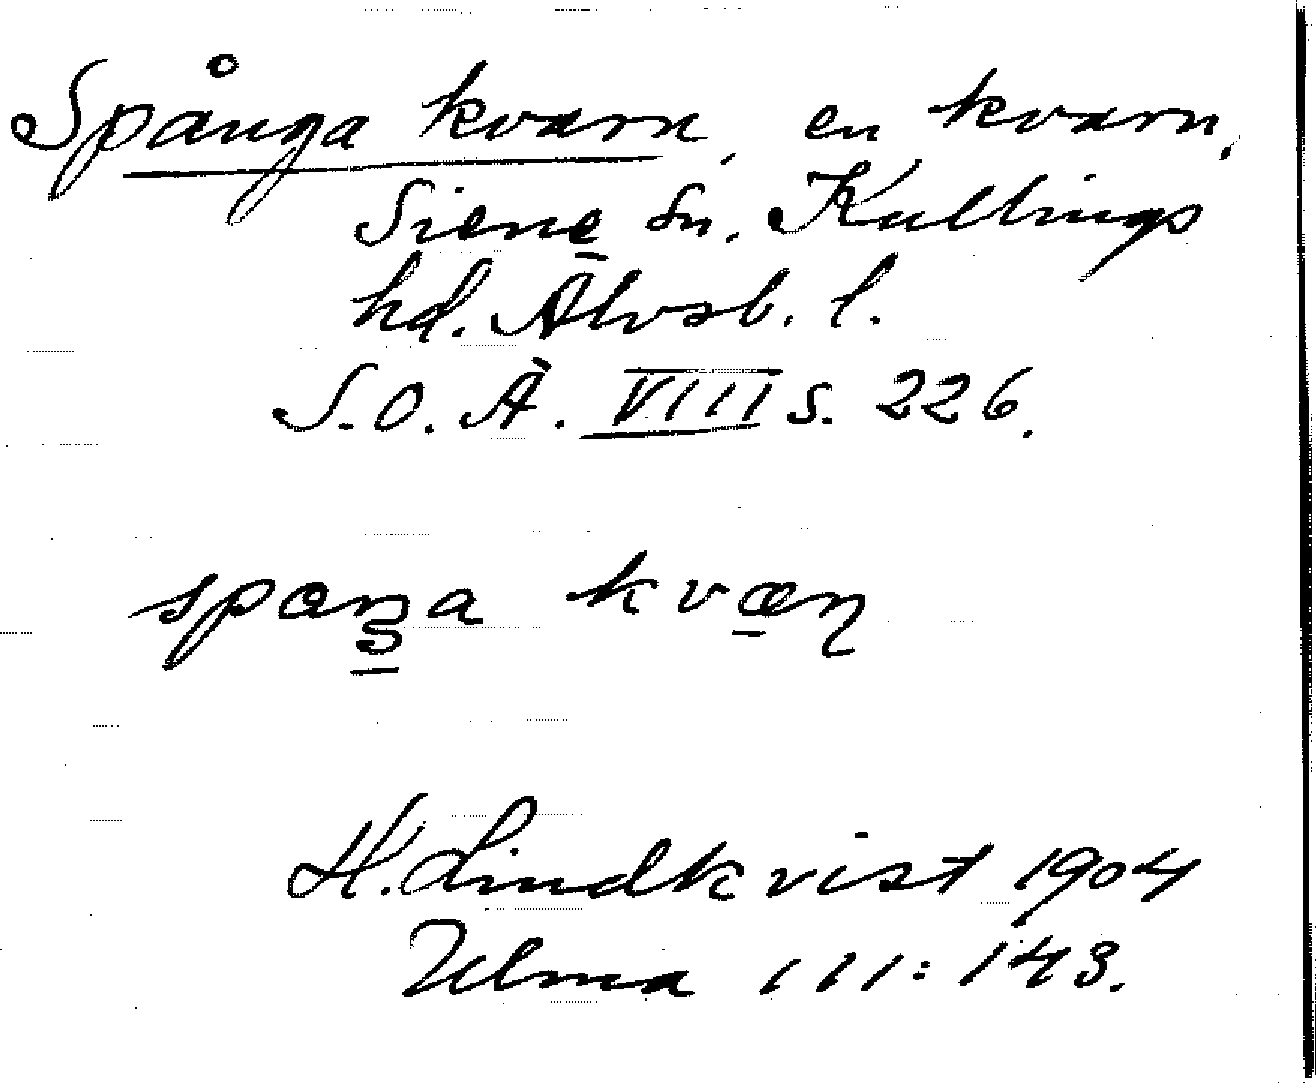 Spånga kvarn, en kvarn,
Siene sn. Kullings
hd. Älvsb. l.
S.O.Ä. VIII s. 226.
kvæɳ
H. Lindkvist 1904
Ulma 111:143.